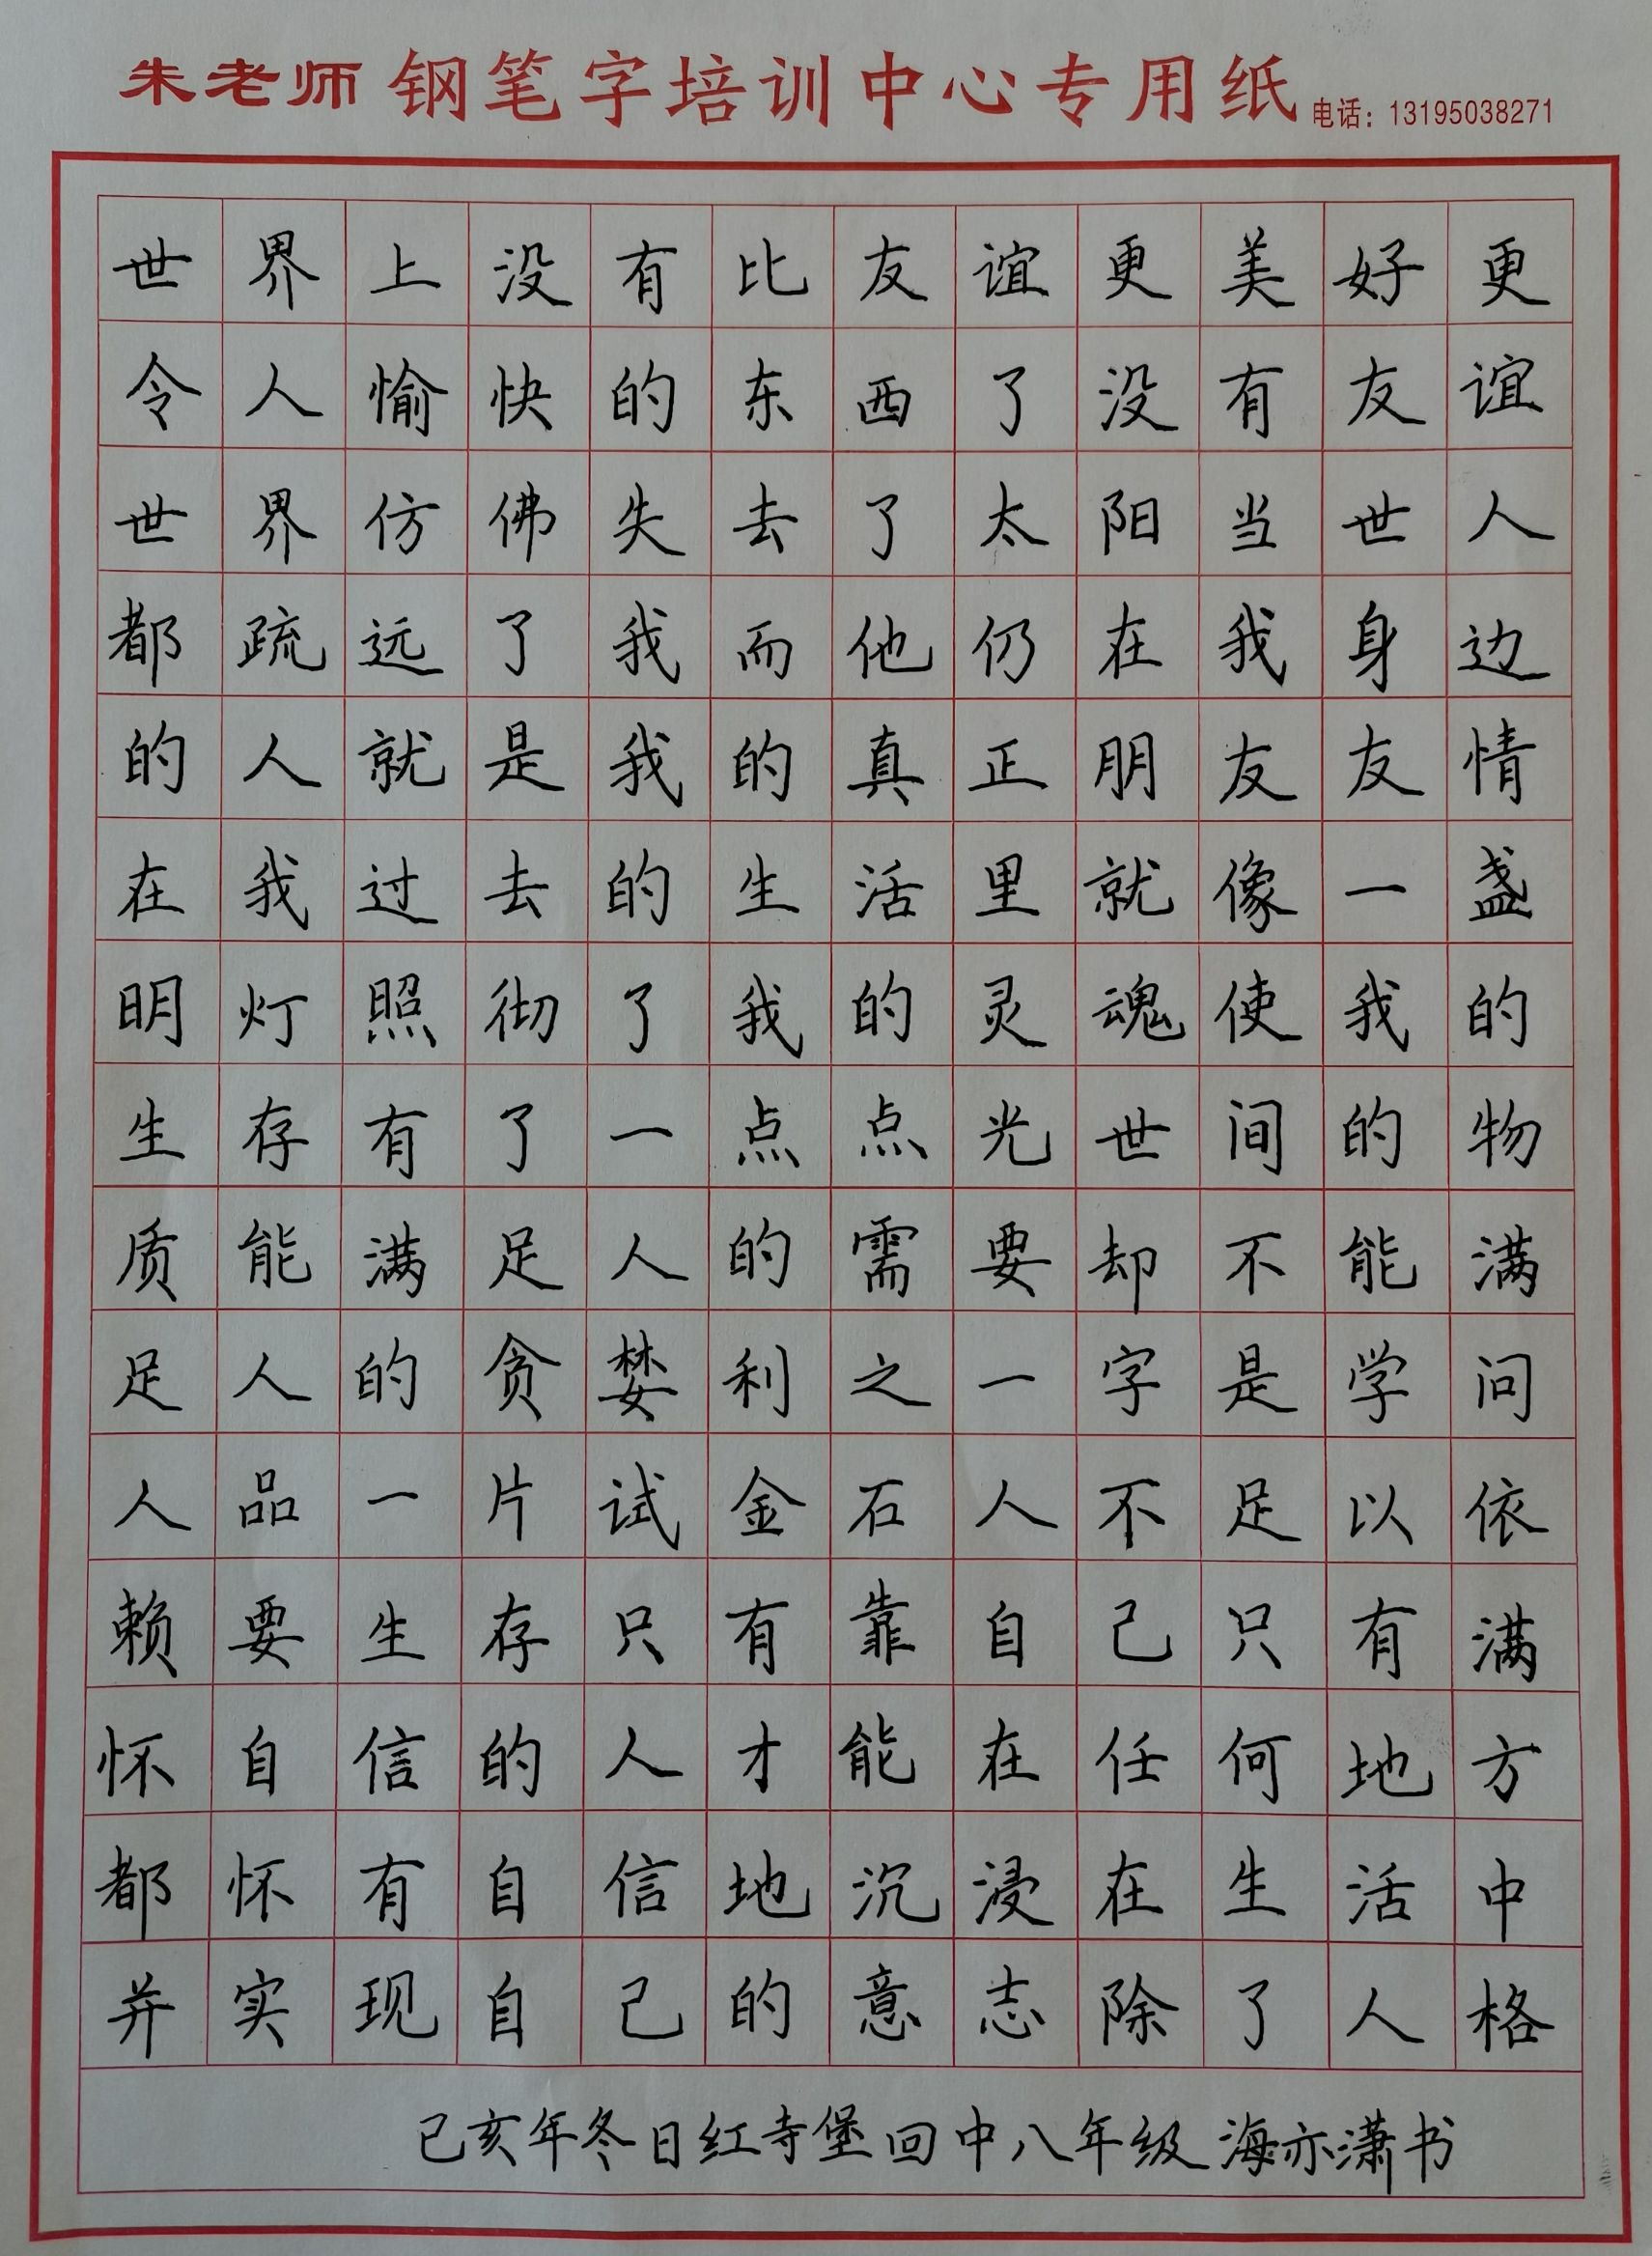 朱老师 钢笔字培训中心专用纸 电话：13195038271
世界上没有比友谊更美好更
令人愉快的东西了没有友谊
世界仿佛失去了太阳当世人
都疏远了我而他仍在我身边
的人就是我的真正朋友友情
在我过去的生活里就像一盏
明灯照彻了我的灵魂使我的
生存有了一点点光世间的物
质能满足人的需要却不能满
足人的贪婪利之一字是学问
人品一片试金石人不足以依
赖要生存只有靠自己只有满
怀自信的人才能在任何地方
都怀有自信地沉浸在生活中
并实现自己的意志除了人格
己亥年冬日红寺堡回中八年级 海亦潇书